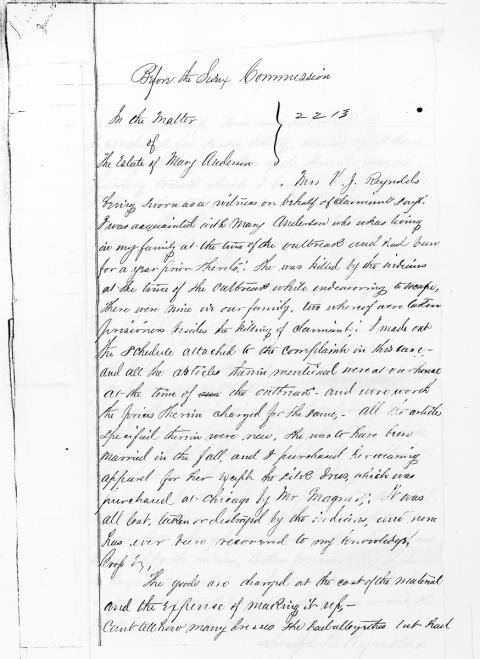 Before the Sioux Commission
In the Matter
of
The Estate of Mary Anderson
2213
Mrs V. J. Reynolds
being sworn as a witness on behalf of claimant says:
I was acquainted with Mary Anderson who was living
in my family at the time of the outbreak and had been
for a year prior thereto; She was killed by the indians
at the time of the outbreak while endeavoring to escape,
there were nine in our family, two whereof were taken
prisoners besides the killing of claimant; I made out
the schedule attached to the complaint in this case—
and all the articles therein mentioned were at our house
at the time of the outbreak— and were worth
the prices therein charged for the same,— all the articles
specified therein were new. She was to have been
married in the fall, and I purchased wearing
apparel for her except the silk dress, which was
purchased at Chicago by Mr Magner; It was
all lost, taken or destroyed by the indians, and none
has ever been recovered to my knowledge,
The goods are charged at the cost of the material
and the expense of making it up,—
Cant tell how many dresses she had altogether but had